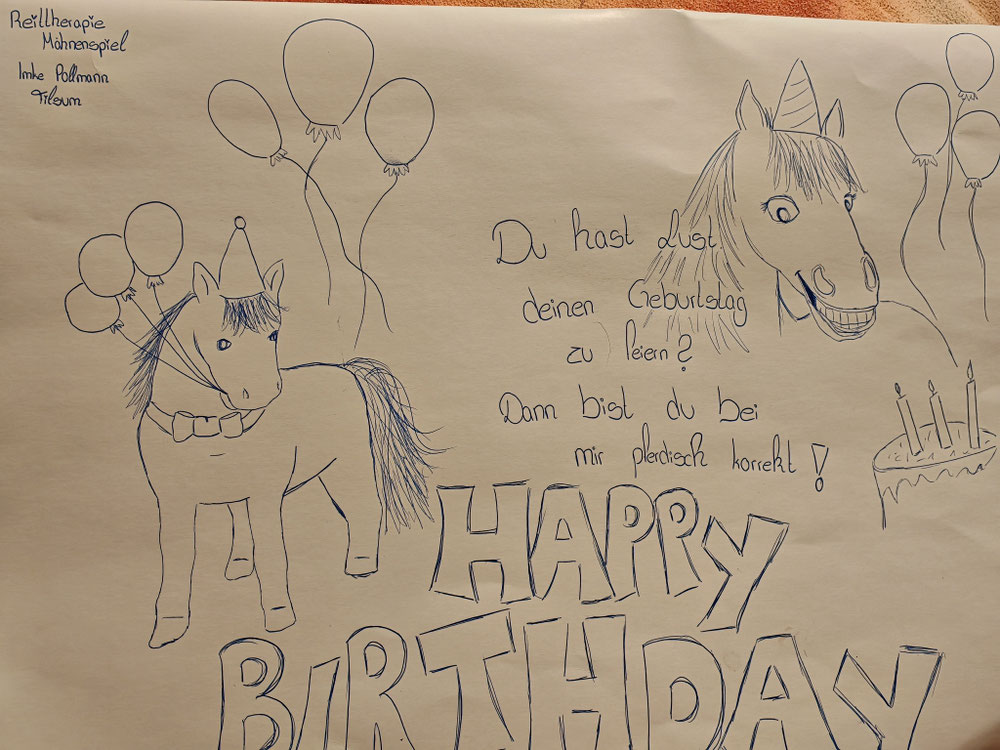 Reittherapie
Mähnenspiel
Imke Pollmann
Tilsum
Du hast Lust
deinen Geburtstag
zu feiern?
Dann bist du bei
mir pferdisch korrekt!
HAPPY
BIRTHDAY